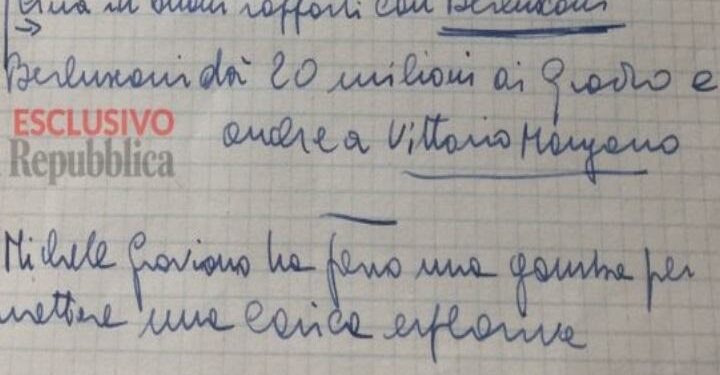 Cinà in buoni rapporti con Berlusconi
→
Berlusconi dà 20 milioni ai Grado e
ESCLUSIVO
Repubblica
anche a Vittorio Mangano
Michele Graviano ha perso una gamba per
mettere una carica esplosiva